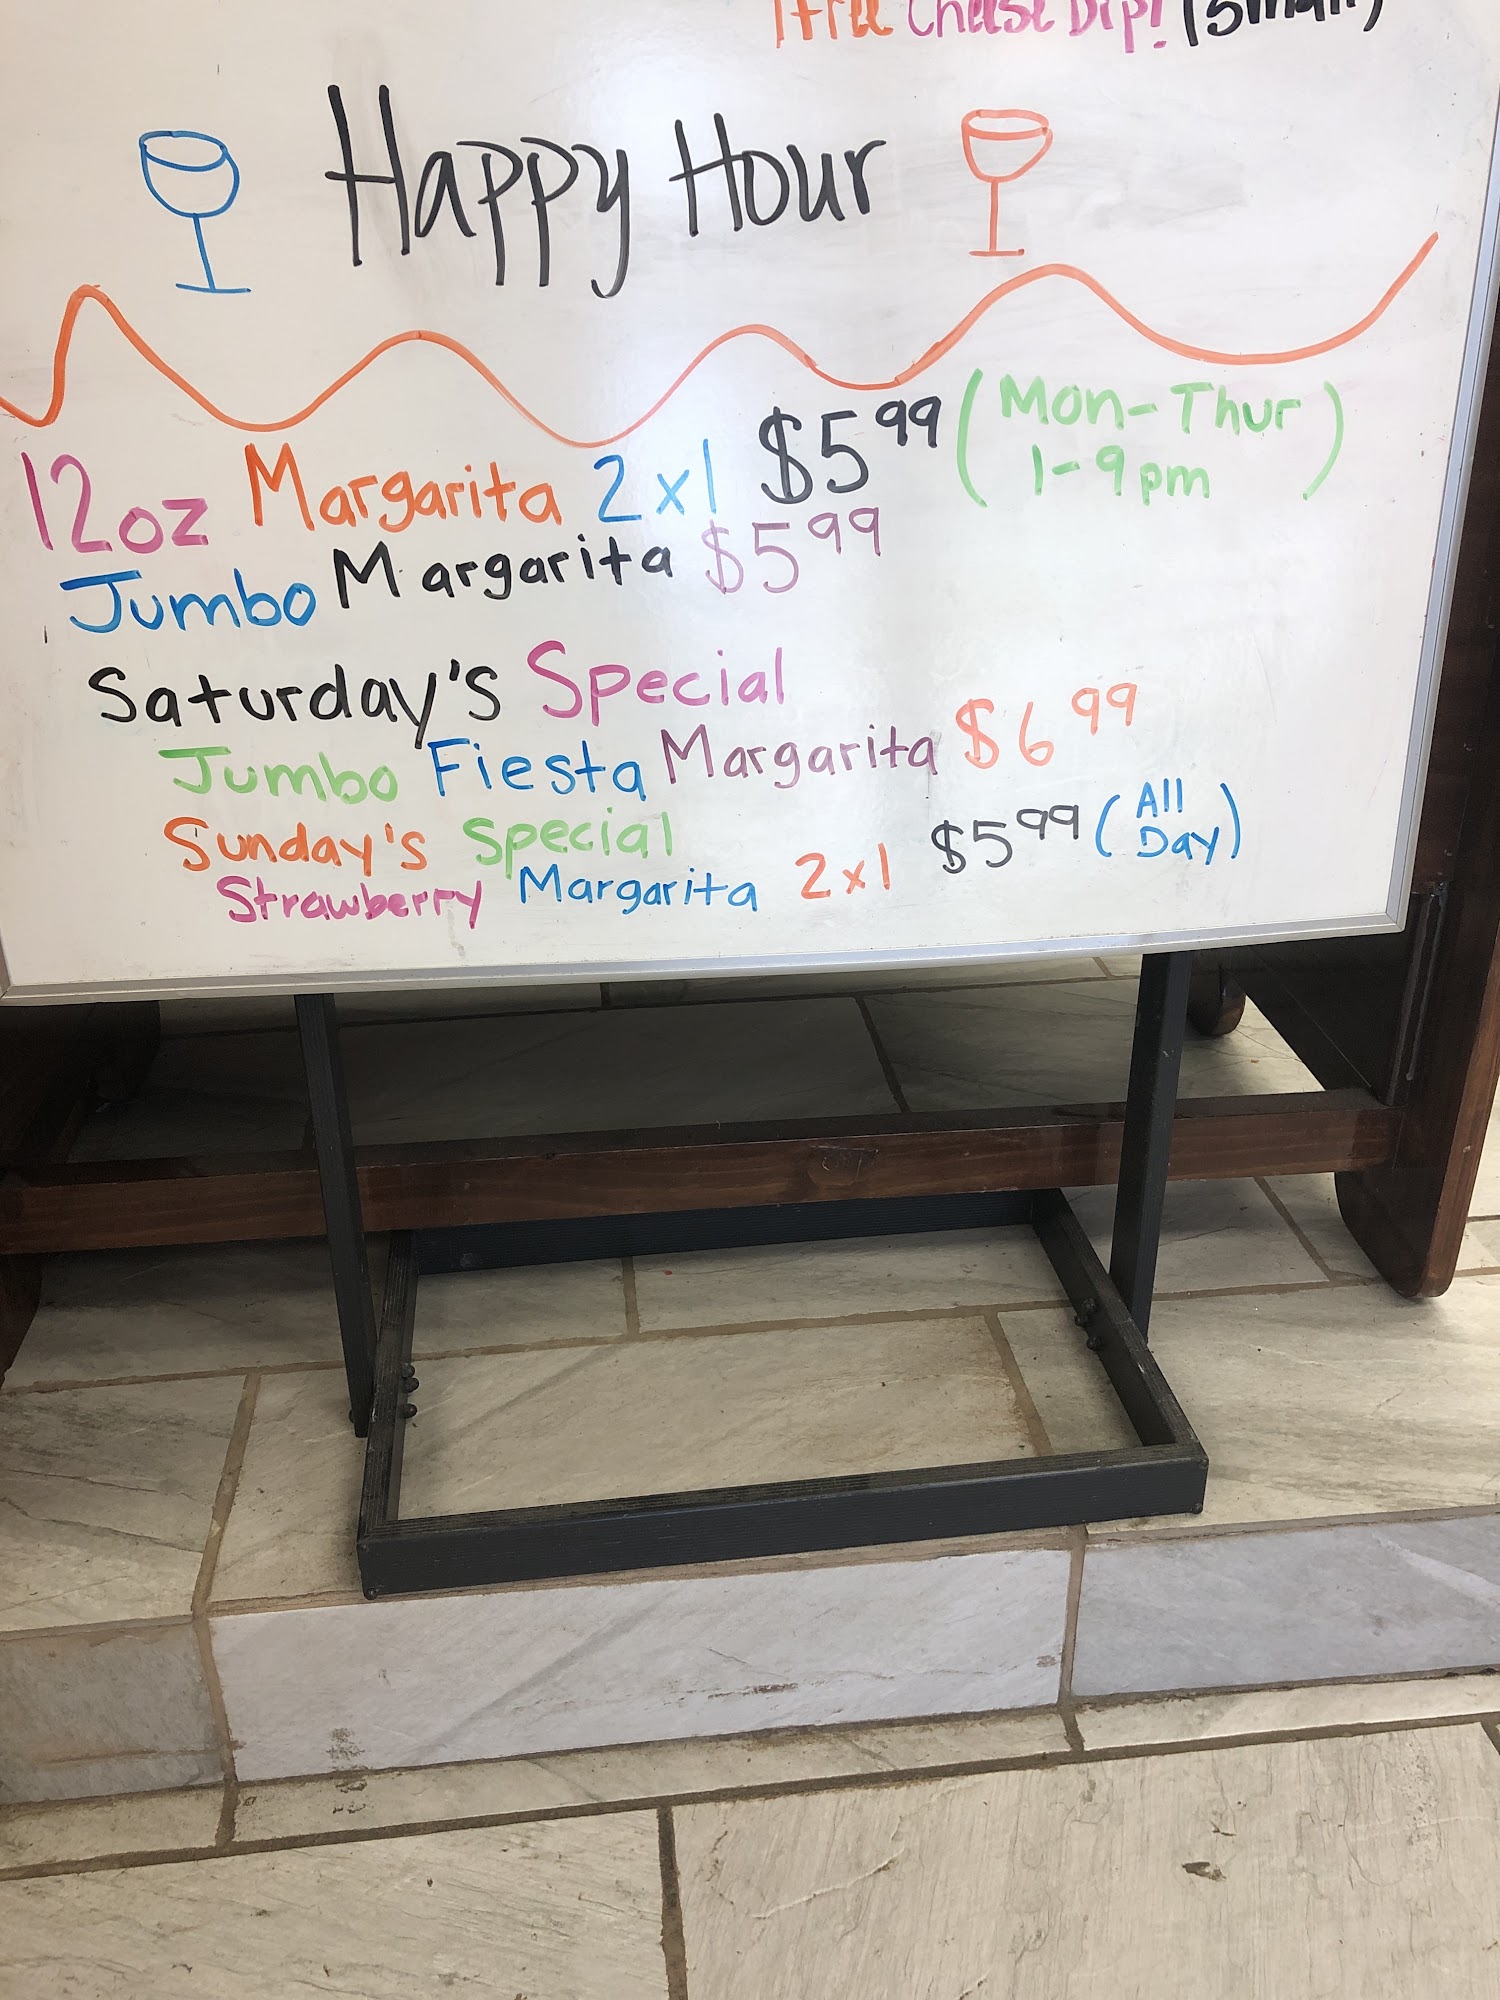 1 Free Cheese Dip! (Small)
Happy Hour
12oz Margarita 2x1 $5.99 (Mon-Thur
1-9pm)
Jumbo Margarita $5.99
Saturday's Special
Jumbo Fiesta Margarita $6.99
Sunday's Special
Strawberry Margarita 2x1 $5.99 (All Day)